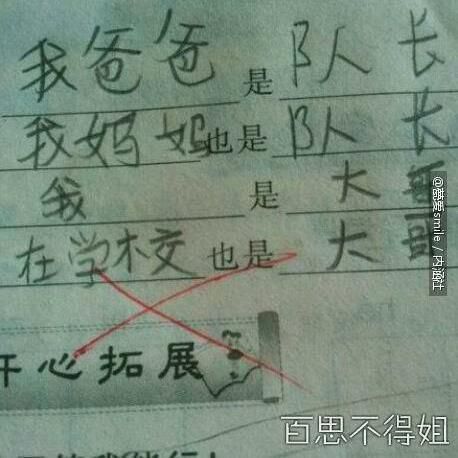 我爸爸是队长
我妈妈也是队长
我是大哥
在学校也是大哥
开心拓展
@慧雯smile / 内涵社
百思不得姐